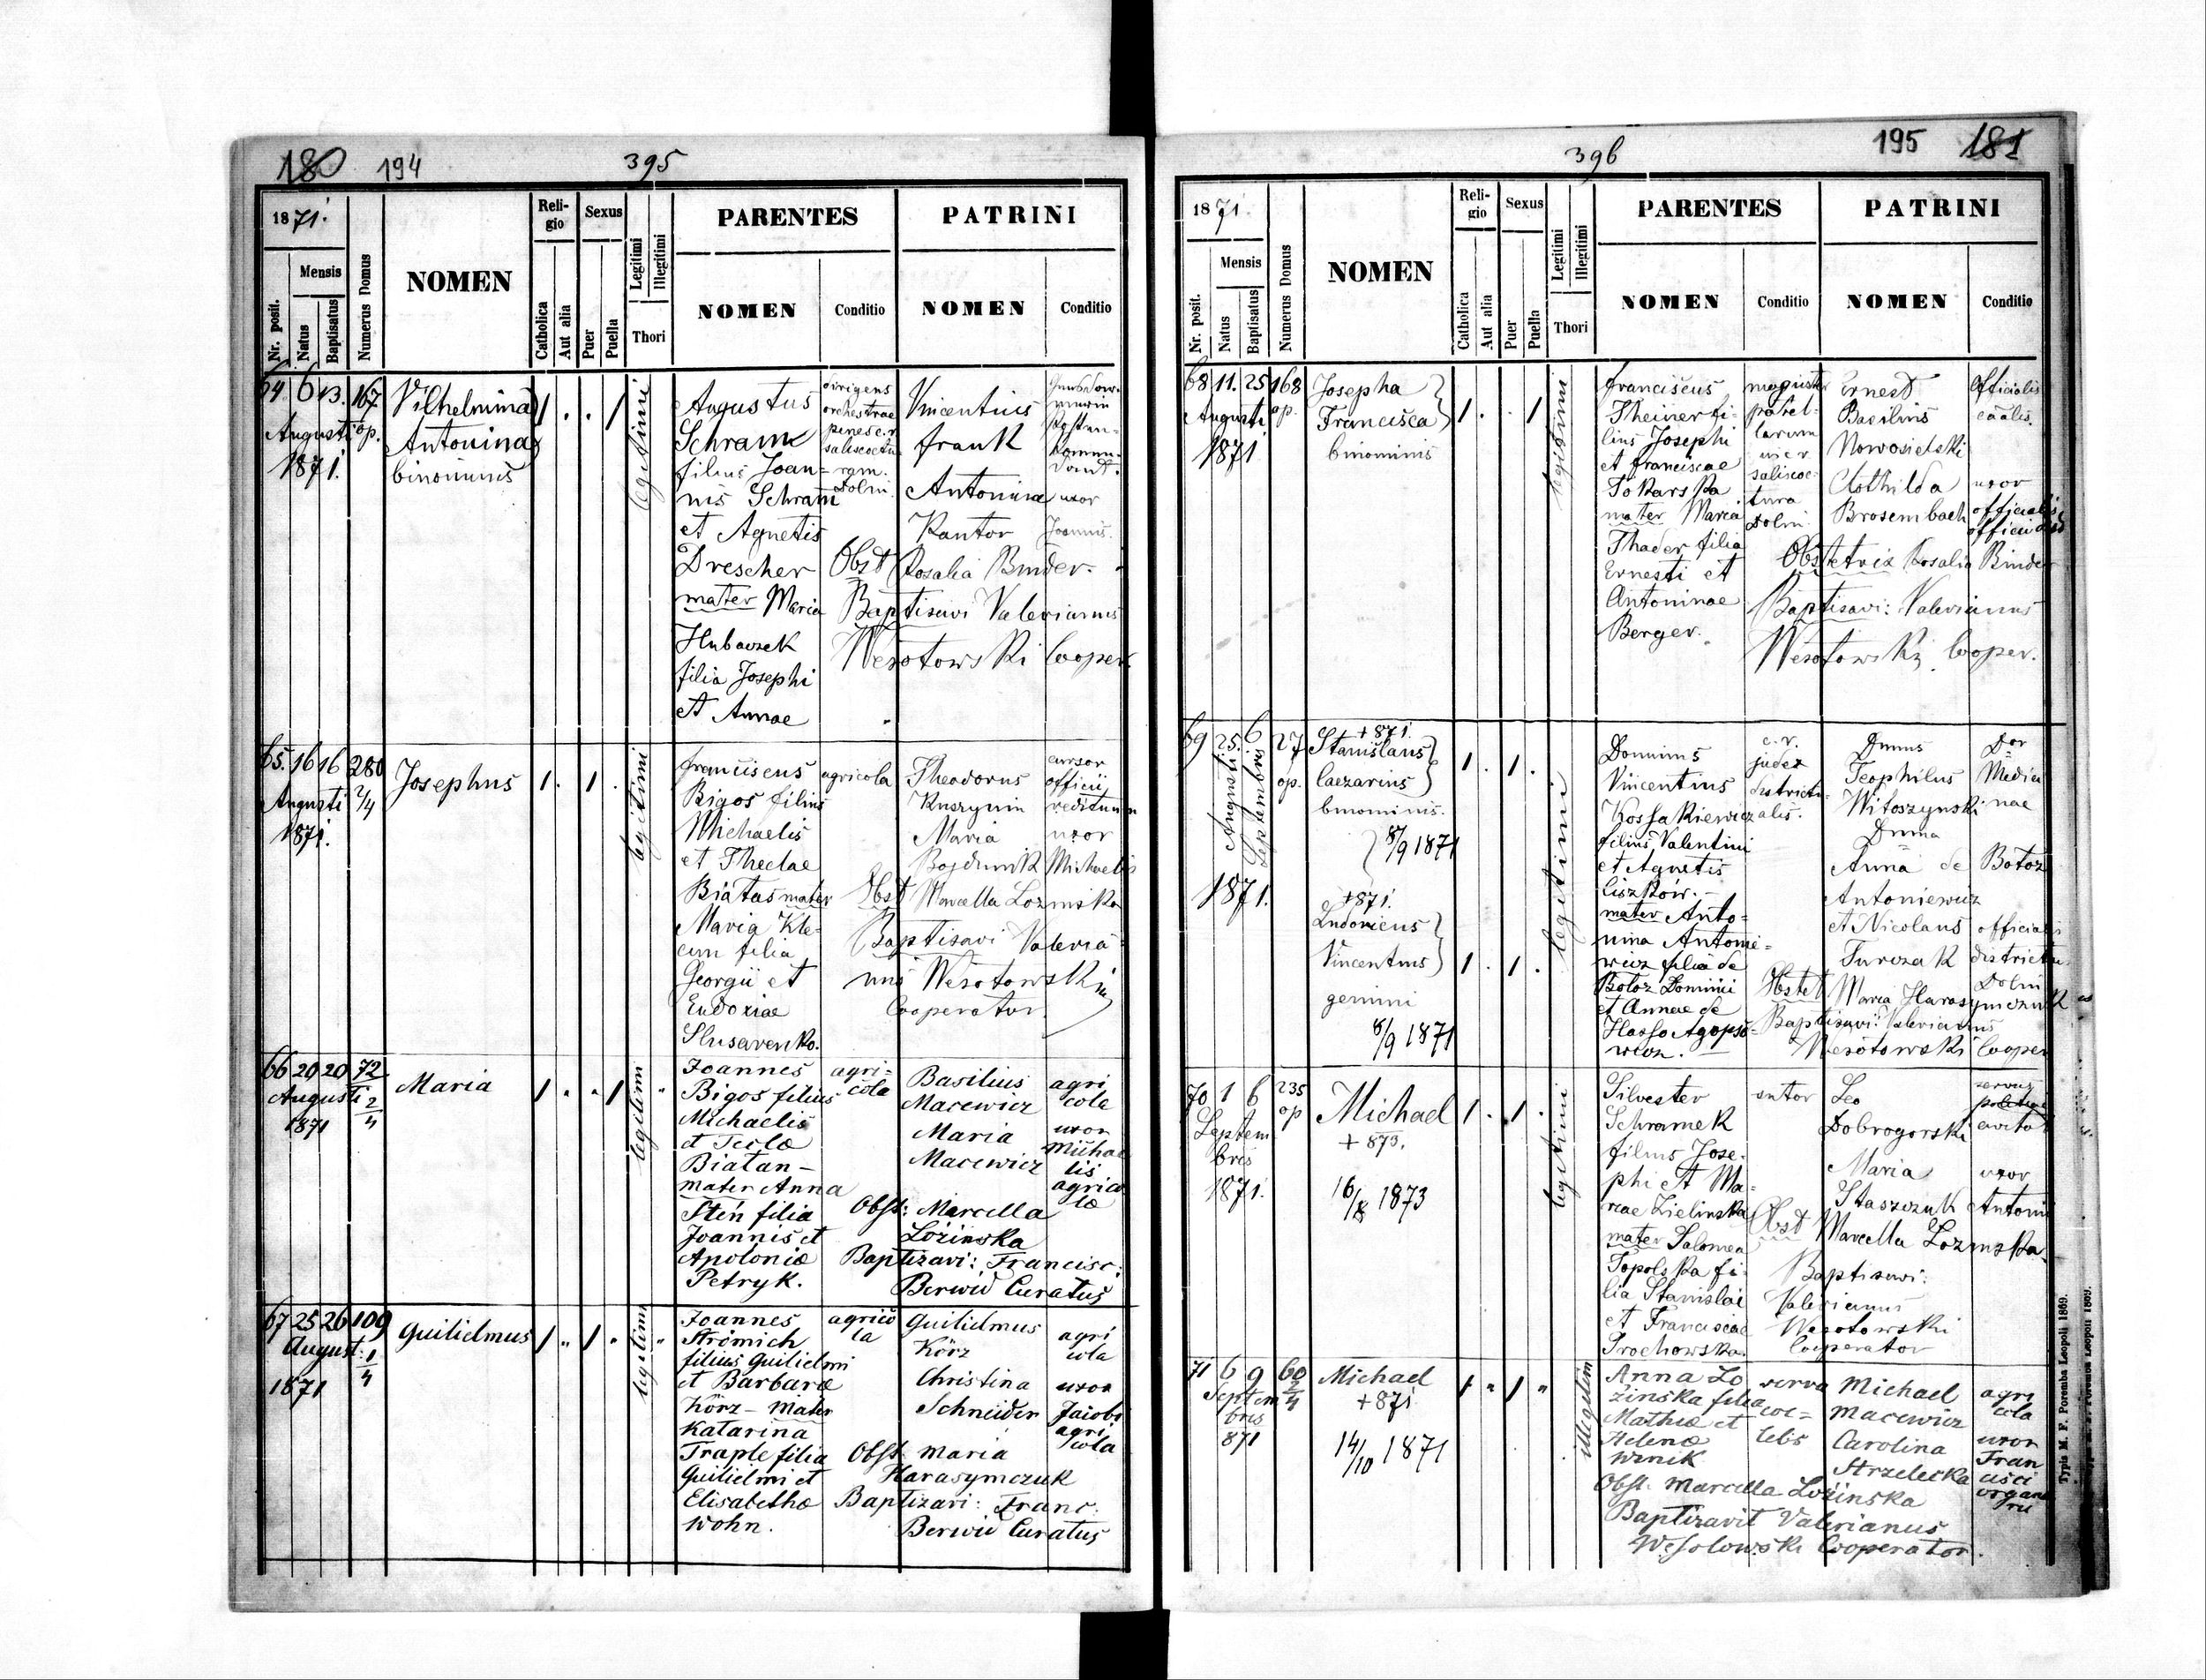 180 194 395
1871.
Nr. posit.
Mensis
Natus
Baptisatus
Numerus Domus
NOMEN
Reli-
gio
Catholica
Aut alia
Sexus
Puer
Puella
Legitimi
Illegitimi
Thori
PARENTES
NOMEN
Conditio
PATRINI
NOMEN
Conditio
64. 6 13. 167
Augusti op.
1871.
Vilhelmina
Antonina
binominis
legitimi
Augustus
Schram
filius Joan-
nis Schram
et Agnetis
Drescher
mater Maria
Hubaczek
filia Josephi
et Annae
dirigens
orchestrae
Dolin.
Vincentius
Frank
Antonina uxor
Kantor Joannis.
Obst Rosalia Binder.
Baptisavi Valerianus
Wesołowski Cooper.
65. 16 16 280
Augusti 2/4
1871.
Josephus
legitimi
Franciscus
Bigos filius
Michaelis
et Theclae
Białas mater
Maria Kle-
filia
Georgii et
Eudoxiae
Slusarenko.
agricola
Theodorus
Maria
cursor
officii
uxor
Michaelis
Obst Marcella Lozinska
Baptisavi Valeria-
nus Wesołowski
Cooperator.
66 20 20 72
Augusti 2/4
1871
Maria
legitimi
Joannes
Bigos filius
Michaelis
et Teclæ
Biatan-
mater Anna
Steń filia
Joannis et
Apoloniæ
Petryk.
agri-
cola
Basilius
Macewicz
Maria
Macewicz
agri
cola
uxor
Michae
lis
agrico
læ
Obst: Marcella
Łozinska
Baptizavi: Francisc:
Berwid Curatus
67 25 26 109
August: 1/4
1871
Guilielmus
legitimi
Joannes
Strömich
filius Guilielmi
et Barbaræ
Körz - Mater
Katarina
Traple filia
Guilielmi et
Elisabethæ
Wohn.
agrico
la
Guilielmus
Körz
Christina
Schneider
agri
cola
uxor
Jacobi
agri
cola
Obst. Maria
Harasymczuk
Baptizavi: Franc:
Berwid Curatus
396 195 181
1871.
Nr. posit.
Mensis
Natus
Baptisatus
Numerus Domus
NOMEN
Reli-
gio
Catholica
Aut alia
Sexus
Puer
Puella
Legitimi
Illegitimi
Thori
PARENTES
NOMEN
Conditio
PATRINI
NOMEN
Conditio
68 11. 25 168
Augusti op.
1871
Josepha
Francisca
binominis
legitimi
Franciscus
Theiner fi-
lius Josephi
et Franciscae
Tokarska
mater Maria
Thader filia
Ernesti et
Antoninae
Berger.
Dolin.
Ernest
Basilius
Nowosielski
Clothilda
Brosembach
Officialis
uxor
officialis
Obstetrix Rosalia Binder
Baptisavi: Valerianus
Wesołowski Cooper.
69 25. 6 27
op.
Augusti
Septembris
1871.
+871.
Stanislaus
Caezarius
binominis.
8/9 1871
+871.
Ludovicus
Vincentius
gemini
8/9 1871
legitimi
Dominus
Vincentius
Kossakiewicz
filius Valentini
et Agnetis
Ciszków. -
mater Anto-
nina Antonie-
wicz filia de
Botoz Dominici
et Annae de
Hasso Agopso-
wicz.
c. r.
judex
districtu-
alis.
Dnnus
Teophilus
Witoszynski
Dnna
Anna de Botoz
Antoniewicz
et Nicolaus
Turczak
Dor
Medici
nae
official
districtu
Dolin
Obstet Maria Harasymczuk
Baptisavi: Valerianus
Wesołowski Cooper
70 1 6 235
op
Septem
bris
1871.
Michael
+873.
16/8 1873
legitimi
Silvester
Schramek
filius Jose-
phi et Ma-
riae Zielinska
mater Salomea
Topolska fi-
lia Stanislai
et Franciscae
Prochowska.
sutor
Leo
Dobrogorski
Maria
Staszczuk
servus
uxor
Antonii
Obst Marcella Lozinska.
Baptisavi:
Valerianus
Wesołowski
Cooperator
71 6 9 60
Septem 2/4
bris
871
Michael
+871
14/10 1871
illegitim
Anna Lo
zinska filia
Mathiæ et
Helenæ
Wznik
serva
coe-
lebs
Michael
Macewicz
Carolina
Strzelecka
agri
cola
uxor
Fran
cisci
organa
rii
Obst. Marcella Lozinska
Baptizavit Valerianus
Wesołowski Cooperator.
Typis M. F. Poremba Leopoli 1869.